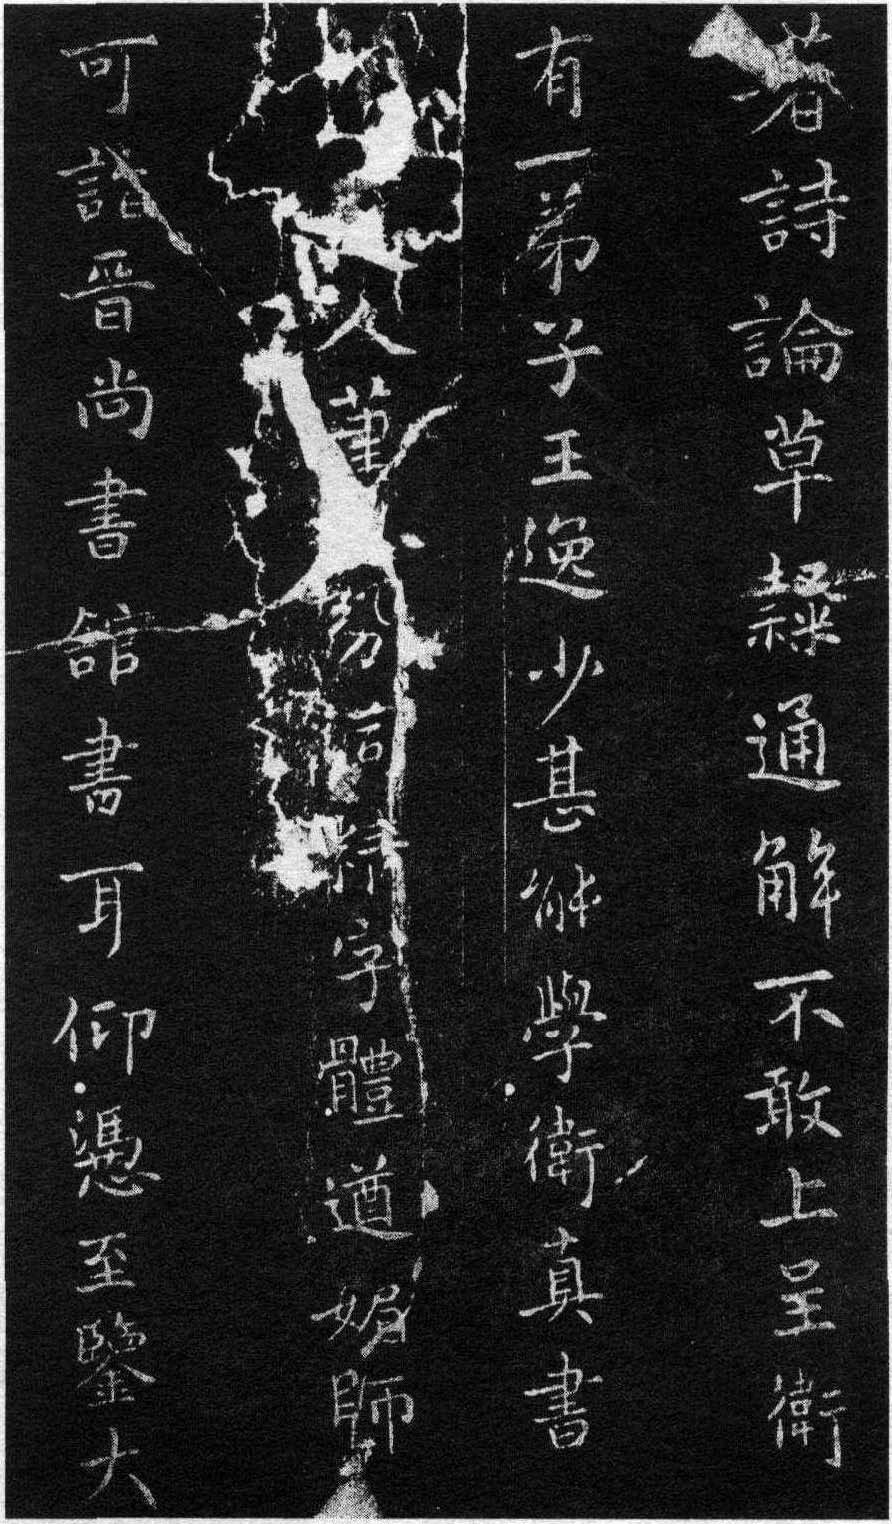 著詩論草隸通解不敢上呈衛
有一弟子王逸少甚能學衛真書
人筆勢洞精字體遒媚師
可詣晉尚書館書耳仰憑至鑒大